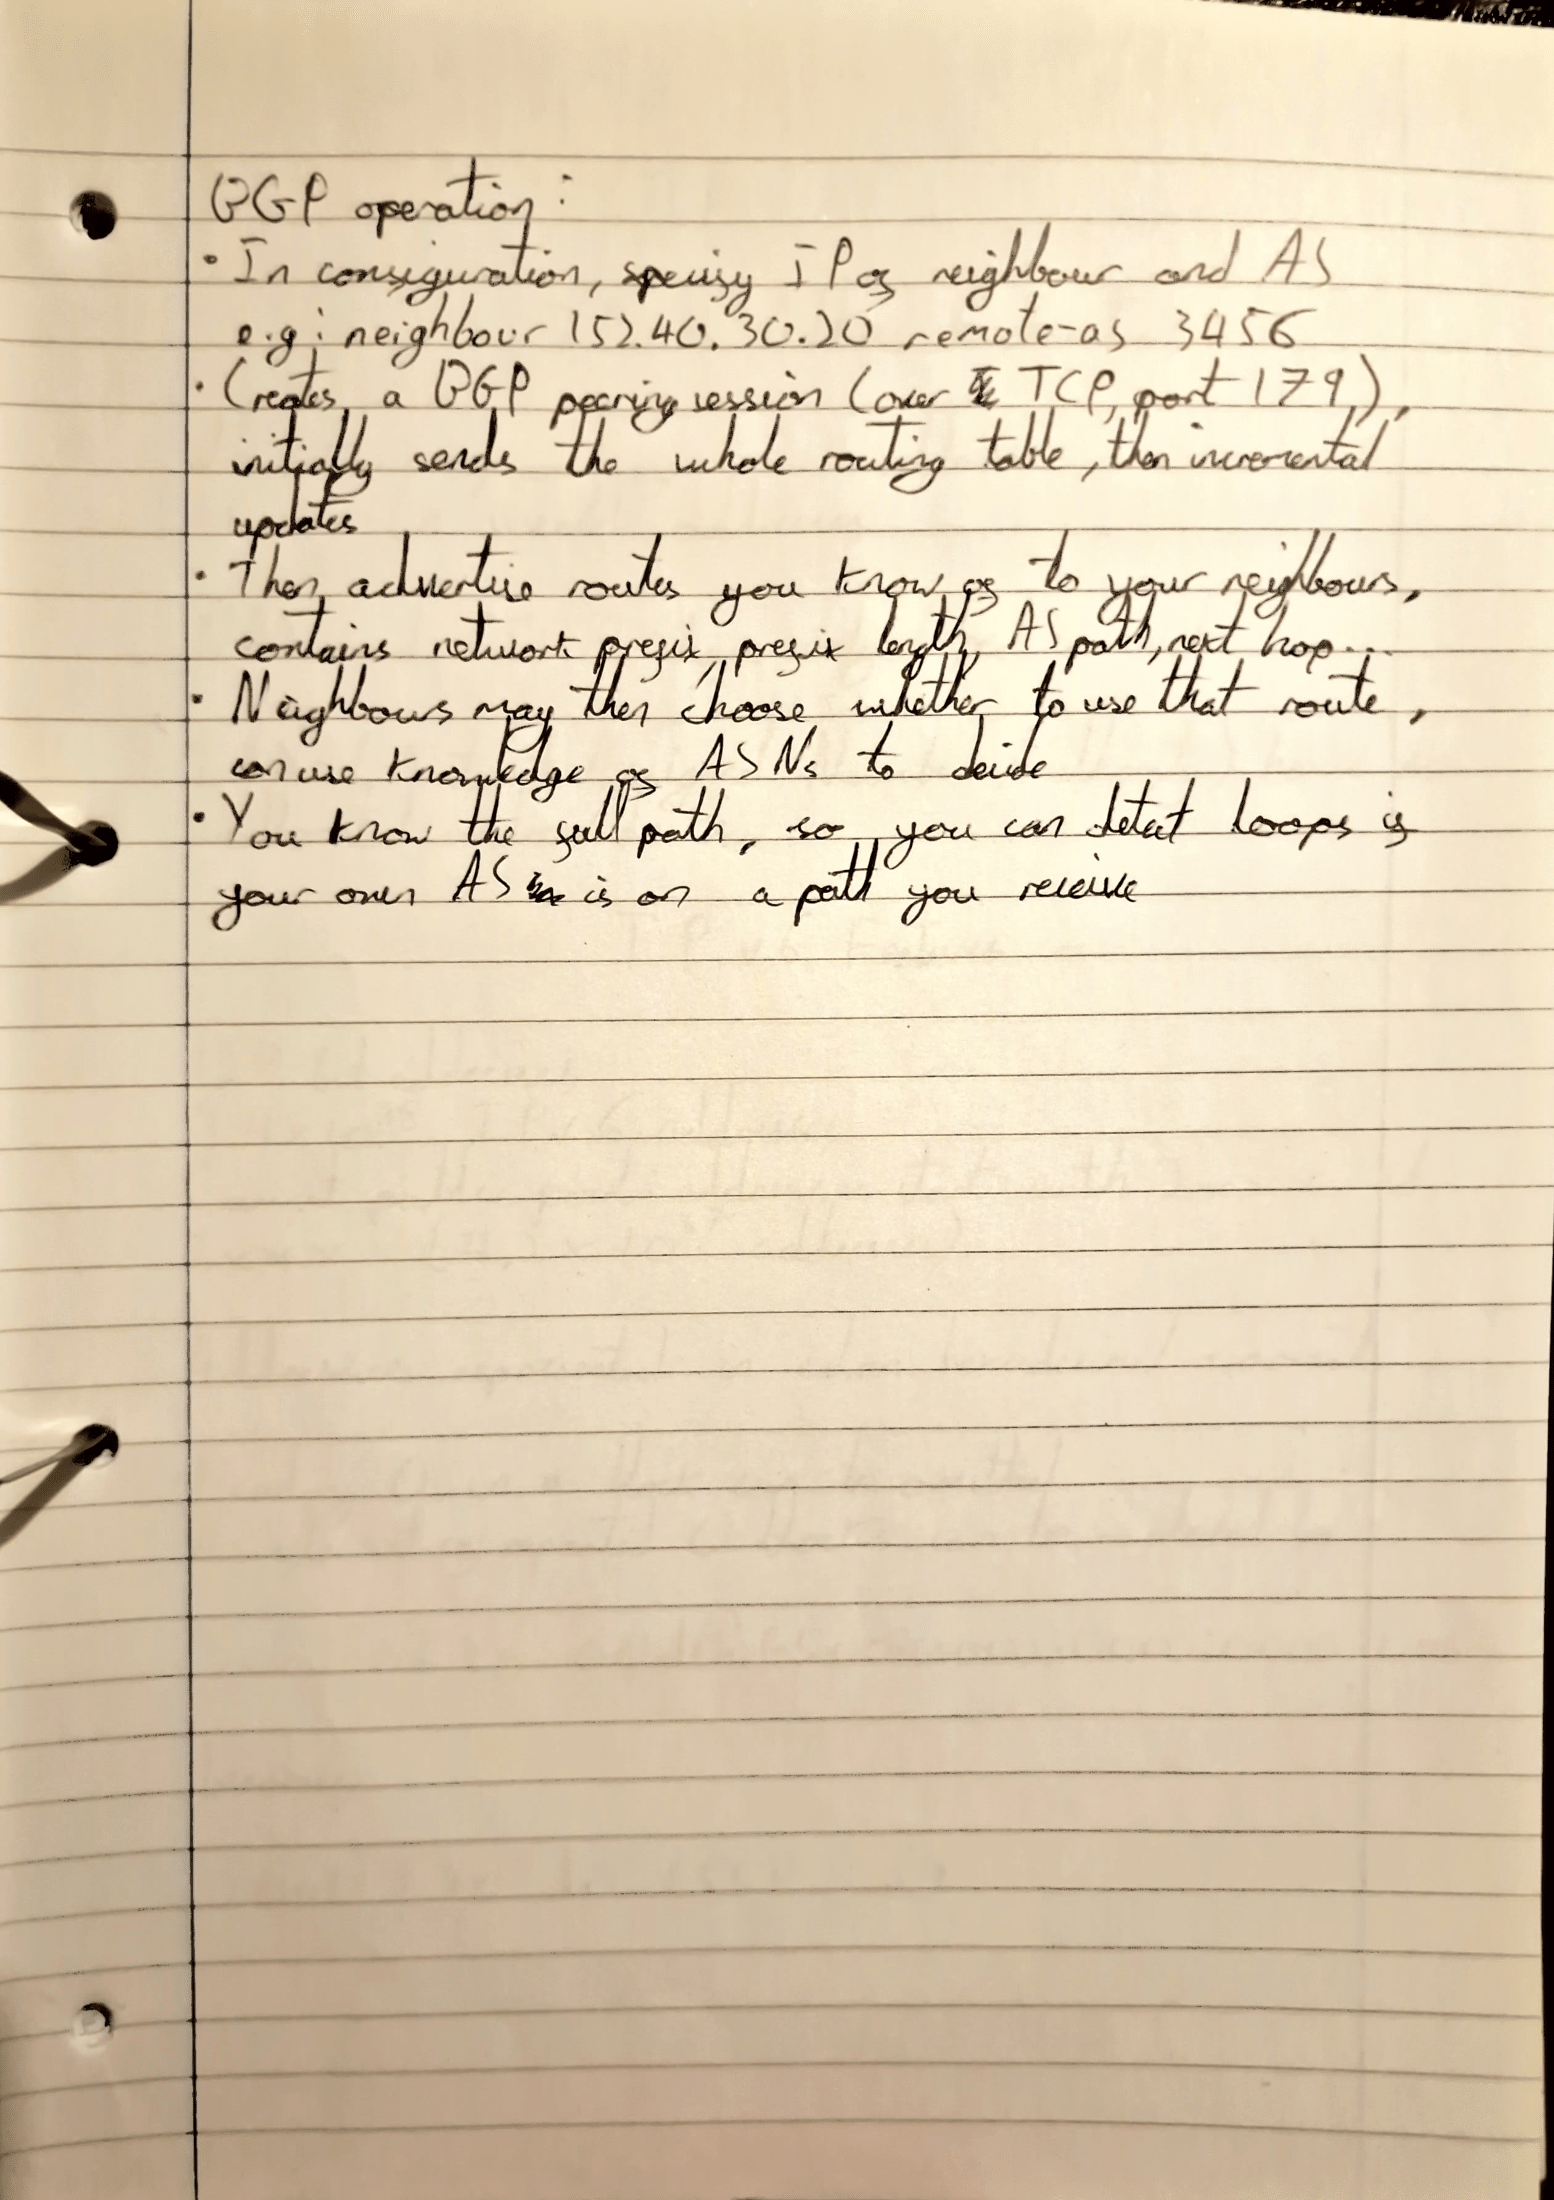 BGP operation:
• In configuration, specify IP of neighbour and AS
e.g: neighbour 152.40.30.20 remote-as 3456
• Creates a BGP peering session (over TCP, port 179),
initially sends the whole routing table, then incremental
updates
• Then advertise routes you know of to your neighbours,
contains network prefix, prefix length, AS path, next hop...
• Neighbours may then choose whether to use that route,
can use knowledge of ASNs to decide
• You know the full path, so you can detect loops if
your own AS is on a path you receive